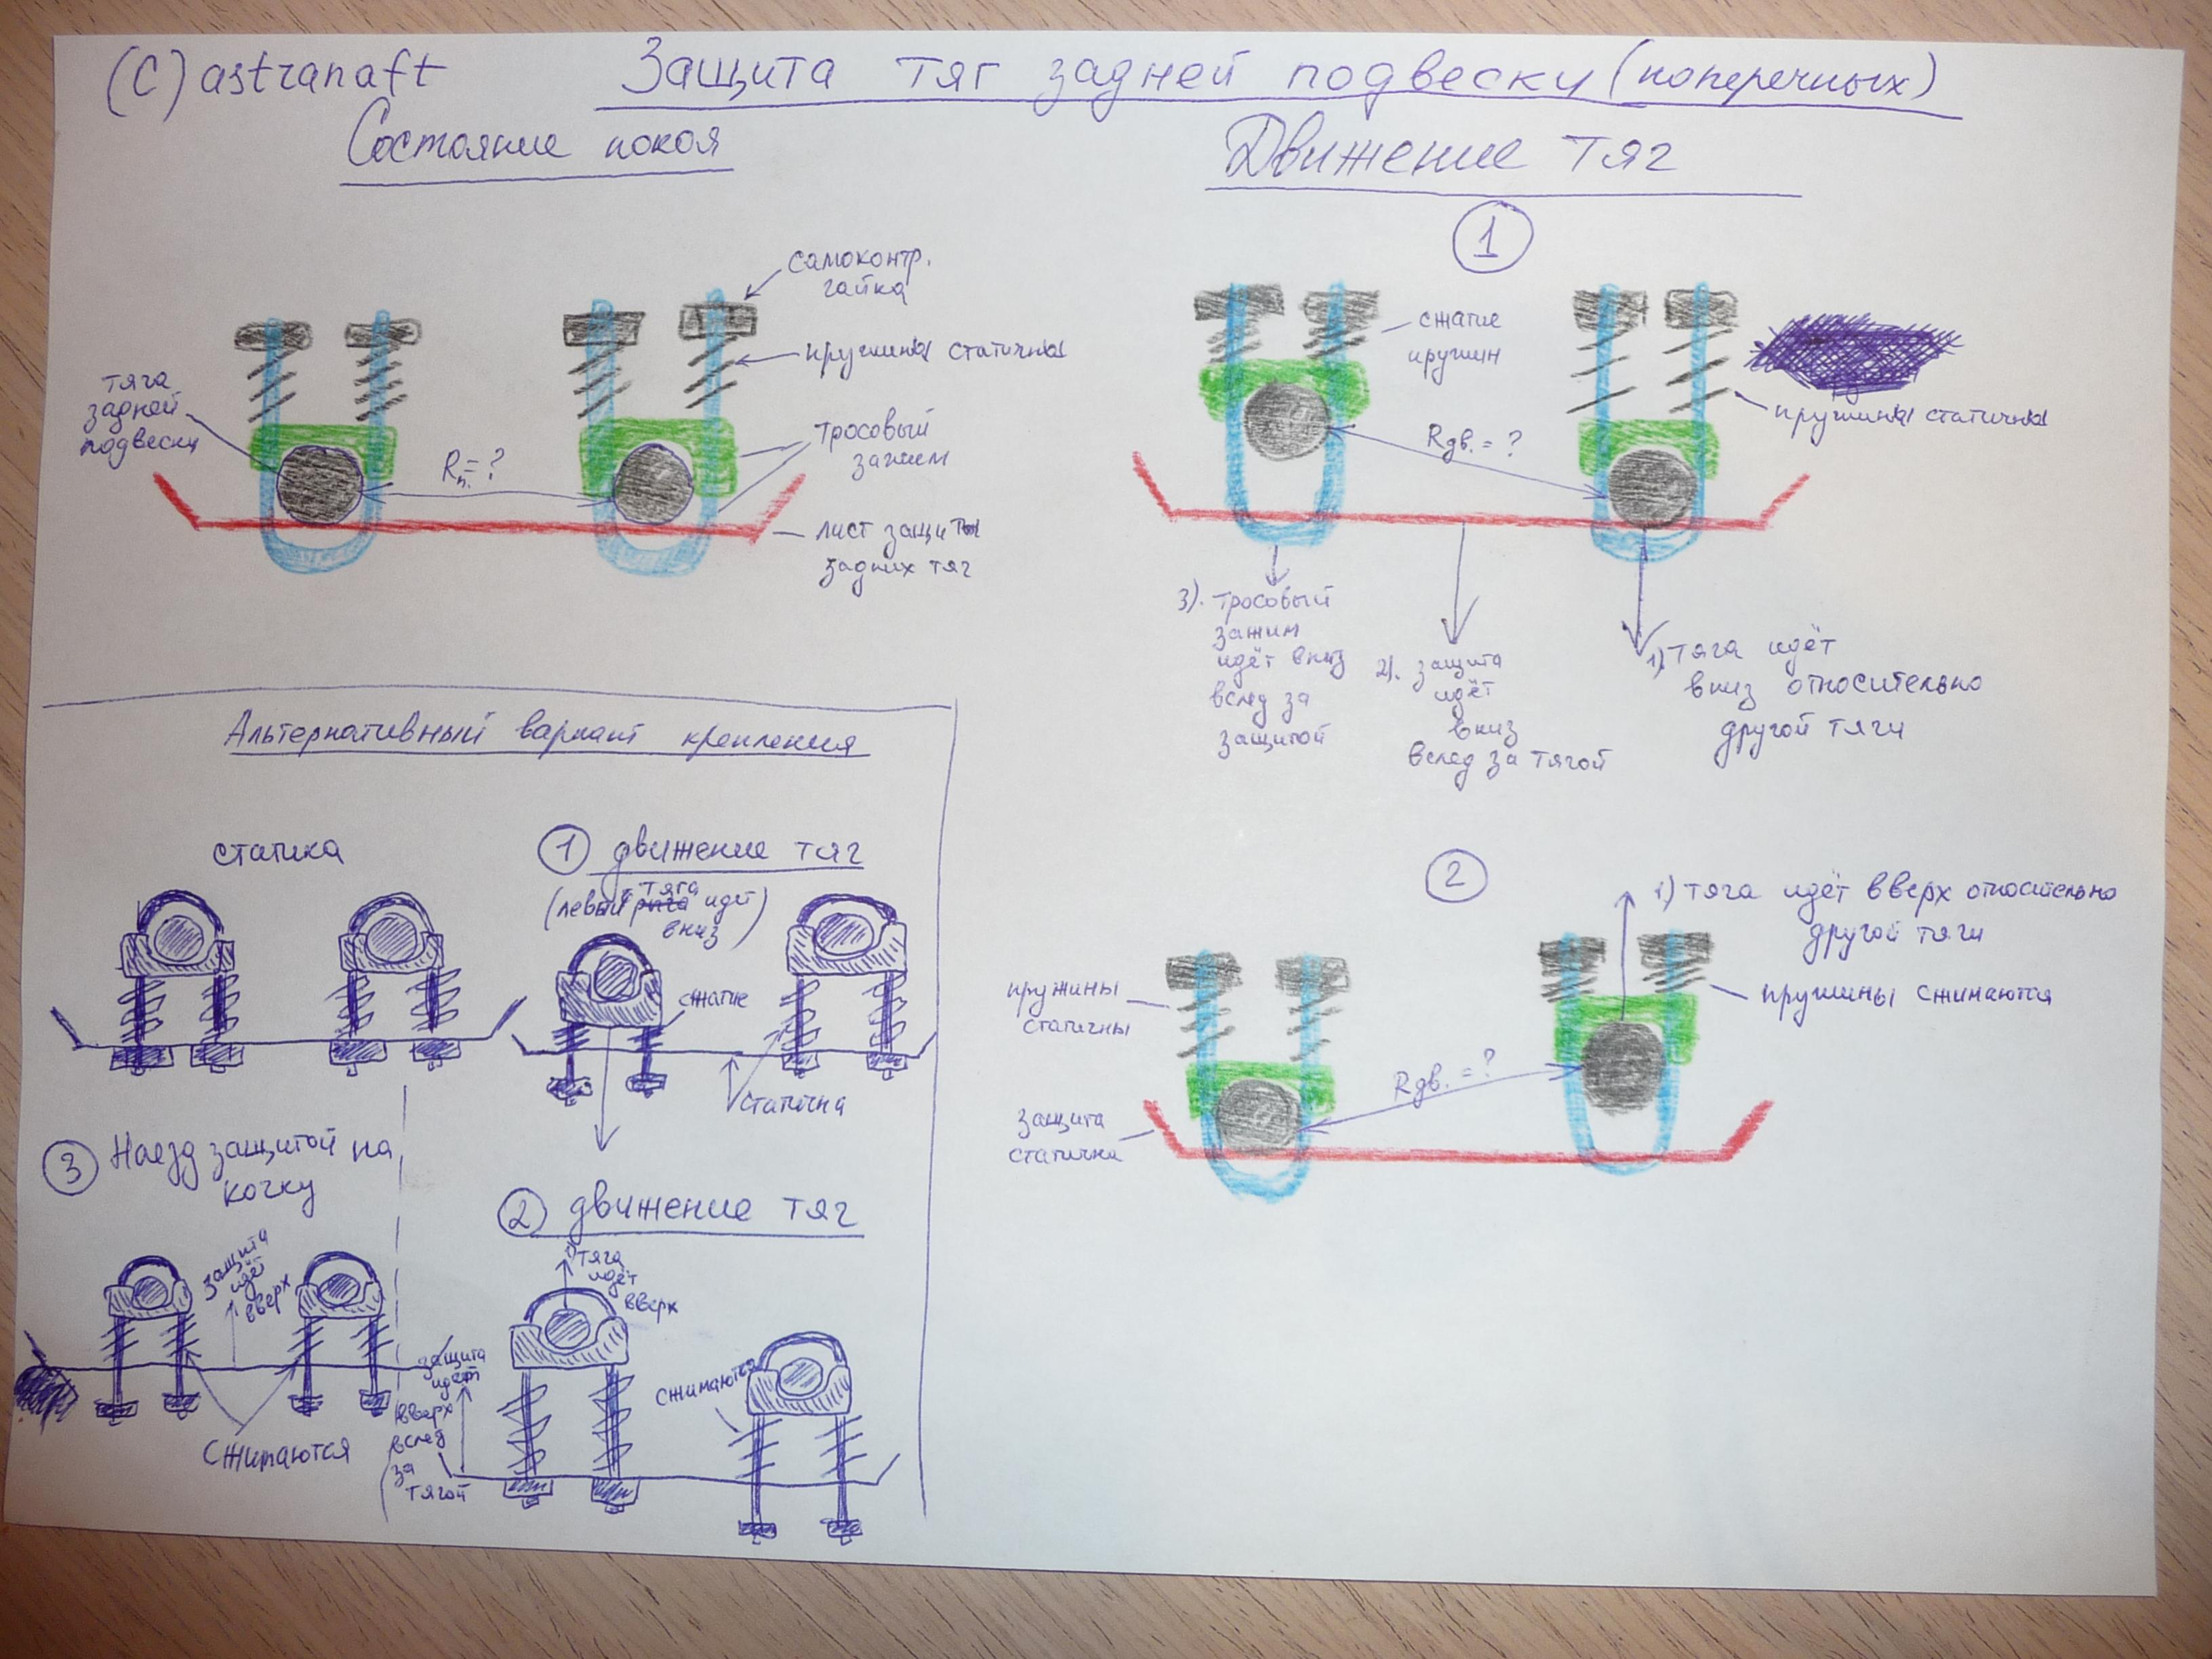 (C) astranaft
Защита тяг задней подвески (поперечных)
Состояние покоя
самоконтр.
гайка
пружины статичны
тяга
задней
подвески
Rп. = ?
тросовый
зажим
лист защиты
задних тяг
Движение тяг
1
сжатие
пружин
пружины статичны
Rдв. = ?
3). тросовый
зажим
идёт вниз
вслед за
защитой
2). защита
идёт
вниз
вслед за тягой
1) тяга идёт
вниз относительно
другой тяги
2
1) тяга идёт вверх относительно
другой тяги
пружины
статичны
пружины сжимаются
Rдв. = ?
защита
статична
Альтернативный вариант крепления
статика
1 движение тяг
(левый тяга идёт
вниз)
сжатие
статична
3 Наезд защитой на
кочку
защита
идёт
вверх
сжимаются
2 движение тяг
1) тяга
идёт
вверх
сжимаются
защита
идёт
вверх
вслед
за
тягой